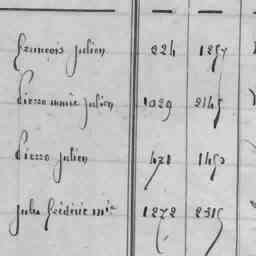 françois Julien 224 1257
Pierre marie Julien 1029 2145
Pierre Julien 421 1452
Jules frédéric mie 1272 2315